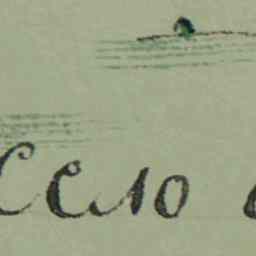 село